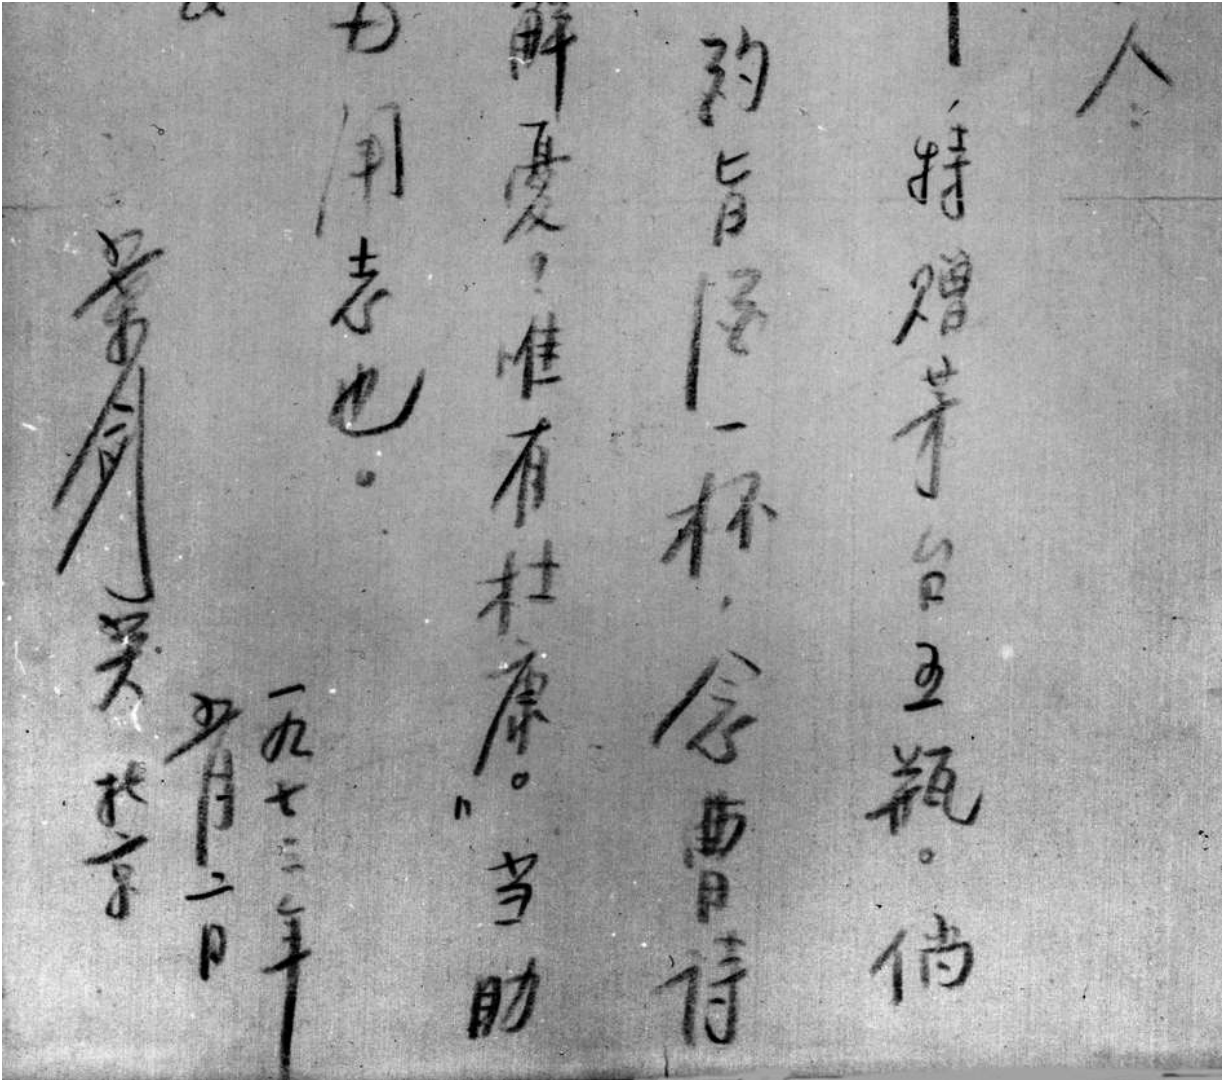 人
特赠茅台五瓶。倘
酌旨酒一杯，念曹诗
解忧，唯有杜康。”当助
用志也。
一九七三年
月二日
叶剑英 北京